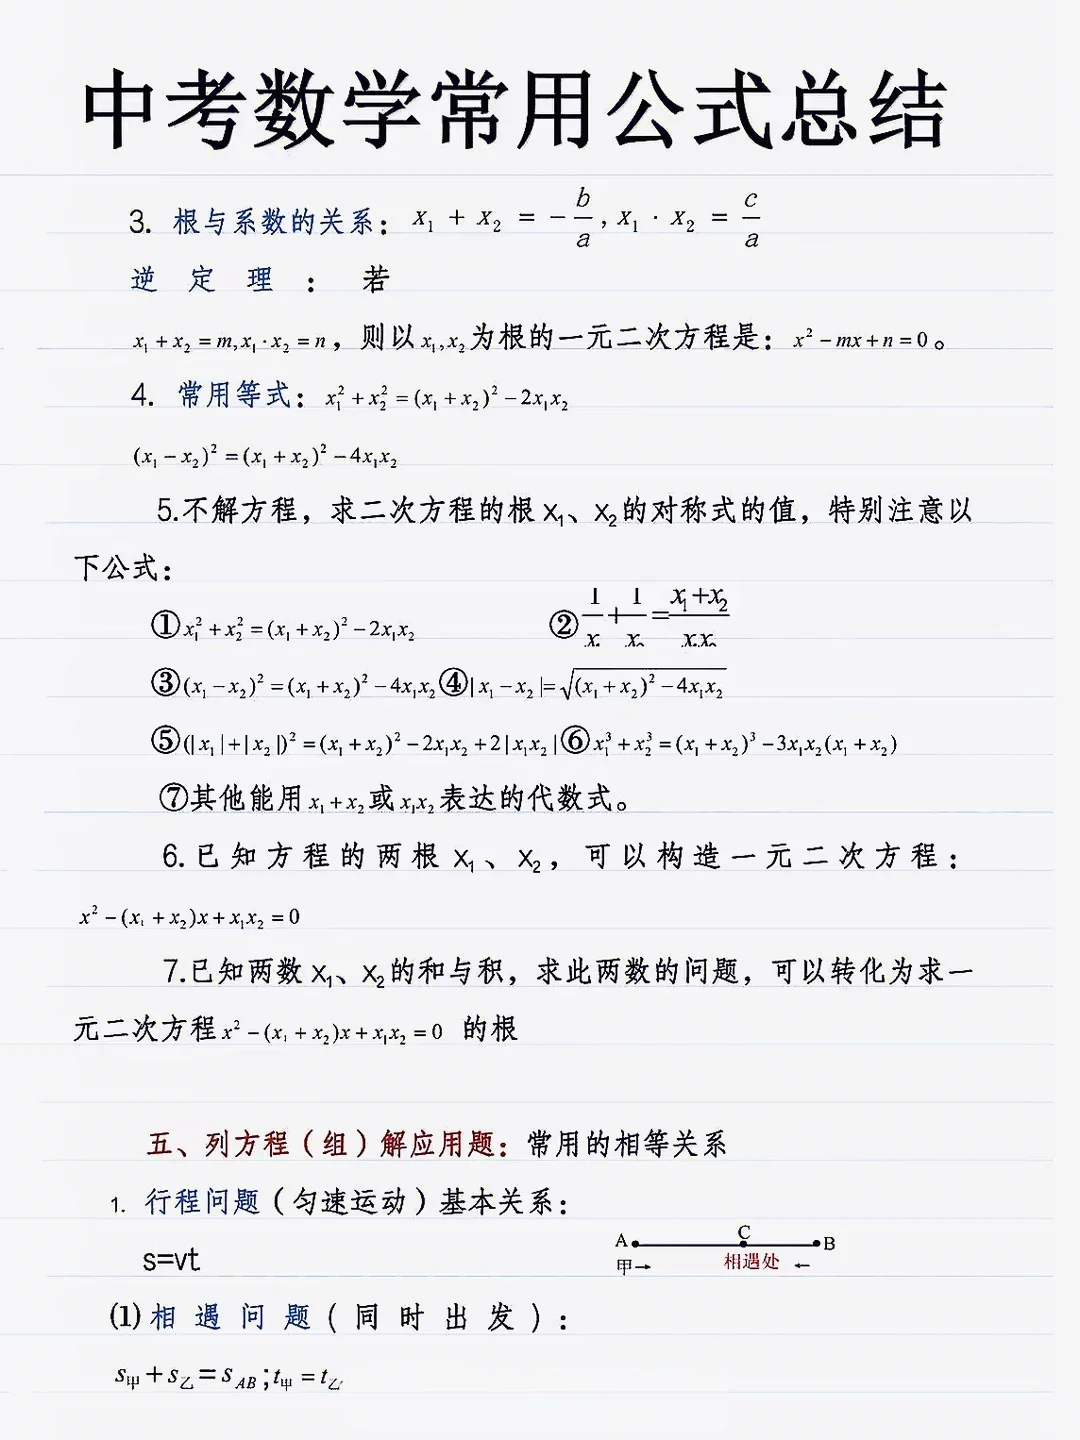 中考数学常用公式总结
3. 根与系数的关系：x₁ + x₂ = −b/a, x₁ · x₂ = c/a
逆定理：若
x₁ + x₂ = m, x₁ · x₂ = n，则以x₁, x₂为根的一元二次方程是：x² − mx + n = 0。
4. 常用等式：x₁² + x₂² = (x₁ + x₂)² − 2x₁x₂
(x₁ − x₂)² = (x₁ + x₂)² − 4x₁x₂
5.不解方程，求二次方程的根x₁、x₂的对称式的值，特别注意以
下公式：
①x₁² + x₂² = (x₁ + x₂)² − 2x₁x₂ ②1/x₁ + 1/x₂ = (x₁+x₂)/x₁x₂
③(x₁ − x₂)² = (x₁ + x₂)² − 4x₁x₂ ④|x₁ − x₂| = √((x₁ + x₂)² − 4x₁x₂)
⑤(|x₁| + |x₂|)² = (x₁ + x₂)² − 2x₁x₂ + 2|x₁x₂| ⑥x₁³ + x₂³ = (x₁ + x₂)³ − 3x₁x₂(x₁ + x₂)
⑦其他能用x₁ + x₂或x₁x₂表达的代数式。
6.已知方程的两根x₁、x₂，可以构造一元二次方程：
x² − (x₁ + x₂)x + x₁x₂ = 0
7.已知两数x₁、x₂的和与积，求此两数的问题，可以转化为求一
元二次方程x² − (x₁ + x₂)x + x₁x₂ = 0 的根
五、列方程（组）解应用题：常用的相等关系
1. 行程问题（匀速运动）基本关系：
s=vt
A C B
甲→ 相遇处 ←
⑴相遇问题(同时出发)：
s甲 + s乙 = sAB ; t甲 = t乙